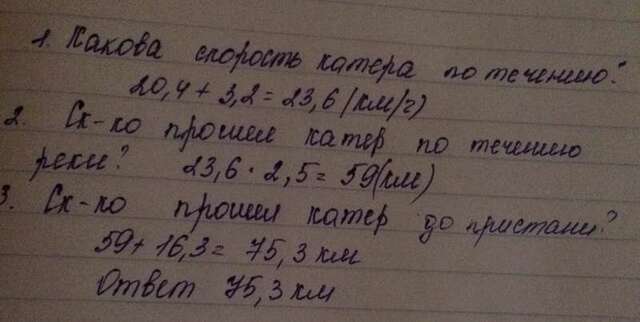 1. Какова скорость катера по течению?
20,4 + 3,2 = 23,6 (км/ч)
2. Ск-ко прошел катер по течению
реки? 23,6 · 2,5 = 59 (км)
3. Ск-ко прошел катер до пристани?
59 + 16,3 = 75,3 км
Ответ 75,3 км